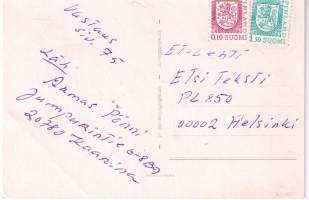 Vastaus
s.v. 75
Läh.
Armas Pönni
Jumpurintie 6-8B9
20780 Kaarina
0.10 SUOMI
1.30 SUOMI
ET-Lehti
Etsi Teksti
PL 850
00002 Helsinki